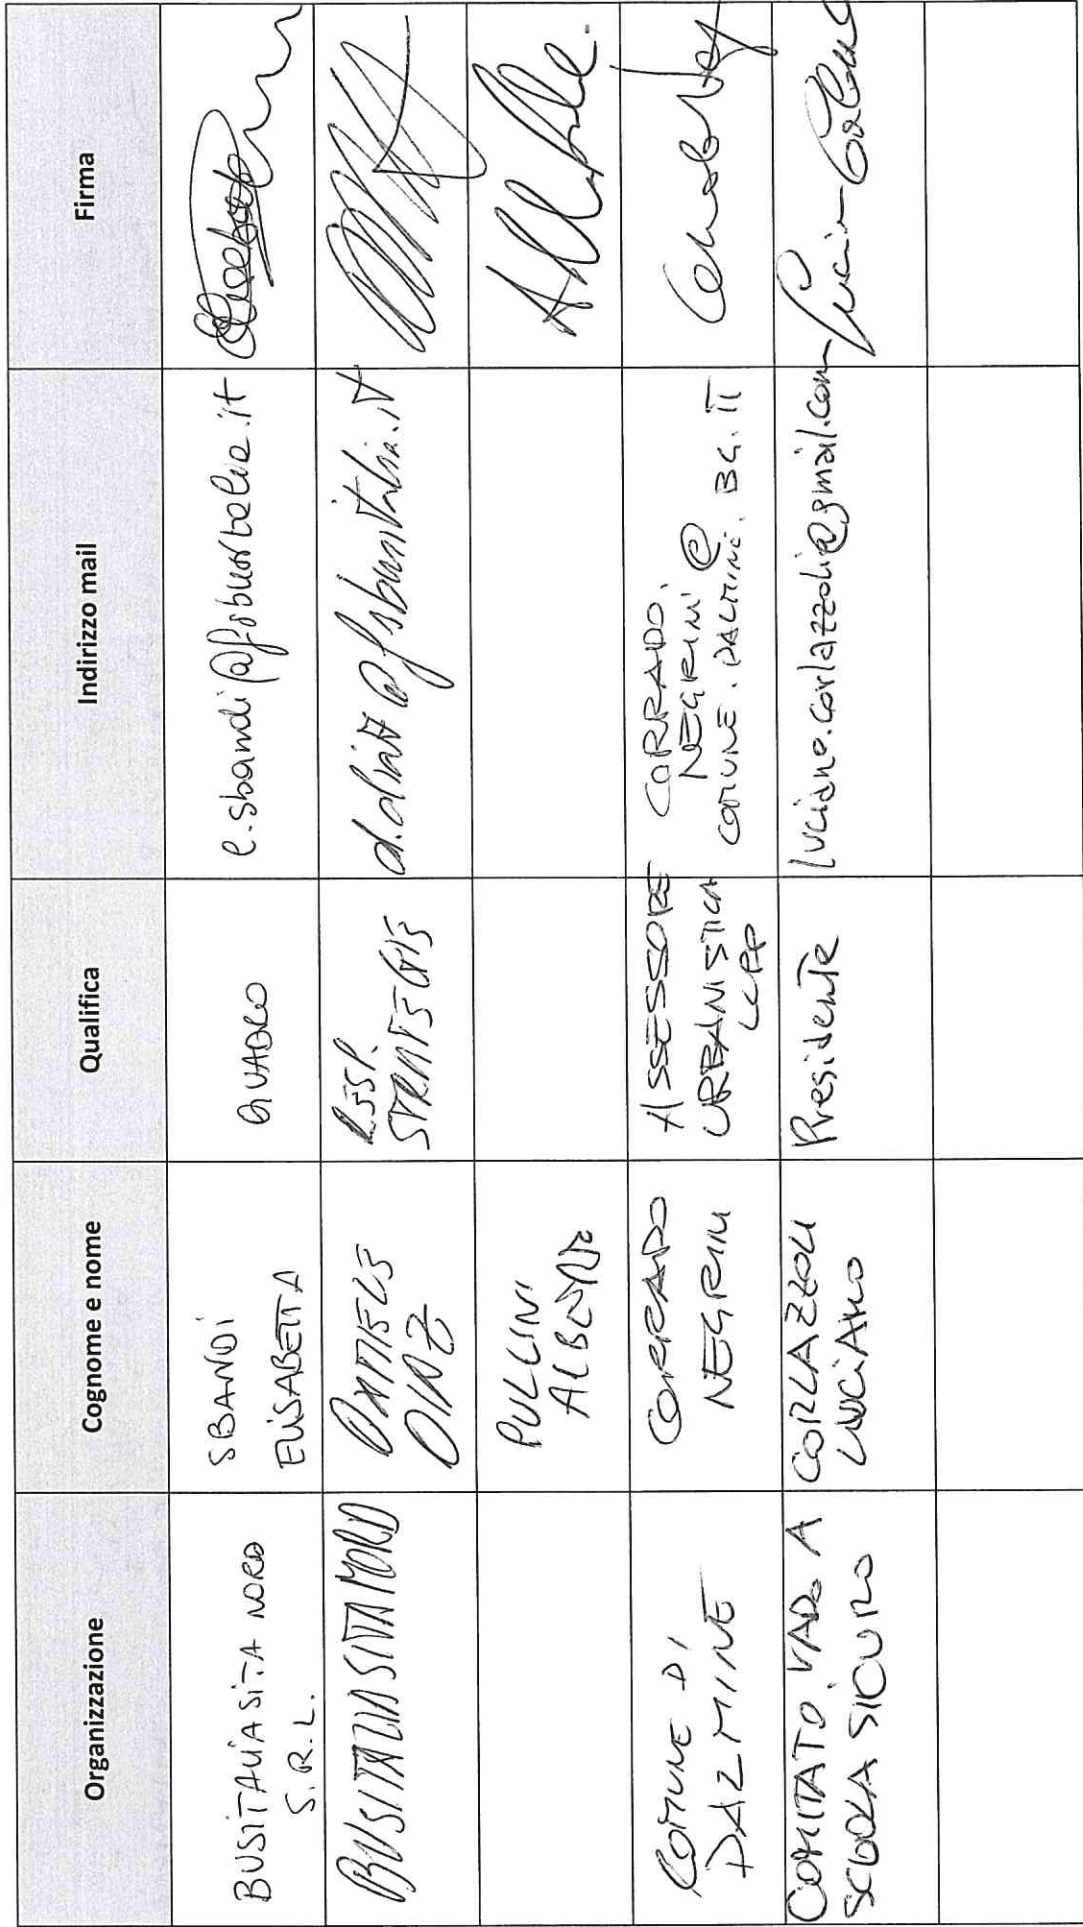 Organizzazione Cognome e nome Qualifica Indirizzo mail Firma
BUSITALIA SITA NORD
S.R.L.
SBANDI
ELISABETTA
QUADRO
e.sbandi@fsbusitalia.it
BUSITALIA SITA NORD
RESP.
STRATEGIE
PULLINI
COMUNE DI
DALMINE
CORRADO
NEGRINI
ASSESSORE
URBANISTICA
LLPP
CORRADO.
NEGRINI @
COMUNE.DALMINE.BG.IT
COMITATO VADO A
SCUOLA SICURO
CORLAZZOLI
LUCIANO
Presidente
luciano.corlazzoli@gmail.com